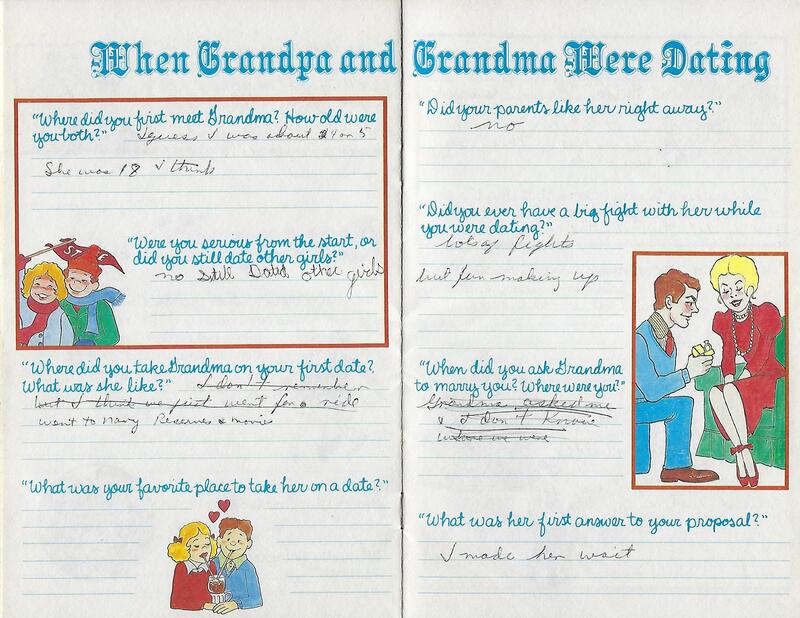 When Grandpa and Grandma Were Dating
"Where did you first meet Grandma? How old were
you both?" I guess I was about 24 or 5
She was 18 I think
"Were you serious from the start, or
did you still date other girls?"
no Still Dated other girls
"Where did you take Grandma on your first date?
What was she like?" I don't remember
but I think we first went for a ride
went to Mary Reserves & movies
"What was your favorite place to take her on a date?"
"Did your parents like her right away?"
no
"Did you ever have a big fight with her while
you were dating?"
lots of fights
but fun making up
"When did you ask Grandma
to marry you? Where were you?"
Grandma asked me
& I Don't Know
where we were
"What was her first answer to your proposal?"
I made her wait